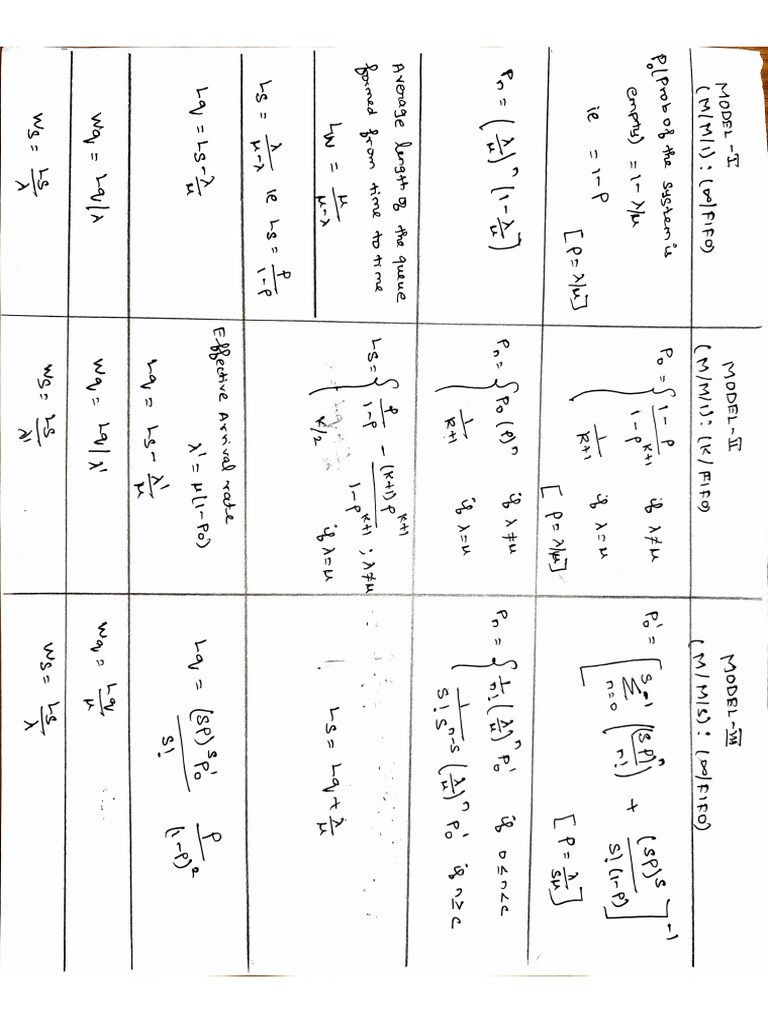 MODEL-I
(M/M/1) : (∞/FIFO)
P₀(Prob of the system is
empty) = 1 - λ/μ
ie = 1-ρ
[ρ = λ/μ]
Pn = (λ/μ)ⁿ (1 - λ/μ)
Average length of the queue
formed from time to time
Lw = μ/(μ-λ)
Ls = λ/(μ-λ) ie Ls = ρ/(1-ρ)
Lq = Ls - λ/μ
Wq = Lq/λ
Ws = Ls/λ
MODEL-II
(M/M/1) : (K/FIFO)
P₀ = { (1-ρ)/(1-ρ^(k+1)) if λ≠μ
1/(k+1) if λ=μ
[ρ = λ/μ]
Pn = { P₀(ρ)ⁿ if λ≠μ
1/(k+1) if λ=μ
Ls = { ρ/(1-ρ) - (k+1)ρ^(k+1)/(1-ρ^(k+1)) ; λ≠μ
K/2 if λ=μ
Effective Arrival rate
λ' = μ(1-P₀)
Lq = Ls - λ'/μ
Wq = Lq/λ'
Ws = Ls/λ'
MODEL-III
(M/M/S) : (∞/FIFO)
P₀' = [ Σ_(n=0)^(S-1) ((Sρ)ⁿ/n!) + (Sρ)^S/(S!(1-ρ)) ]^(-1)
[ρ = λ/(sμ)]
Pn = { 1/n! (λ/μ)ⁿ P₀' if 0≤n<c
1/(S! S^(n-s)) (λ/μ)ⁿ P₀' if n≥c
Ls = Lq + λ/μ
Lq = (Sρ)^S P₀'/S! ρ/(1-ρ)²
Wq = Lq/μ
Ws = Ls/λ